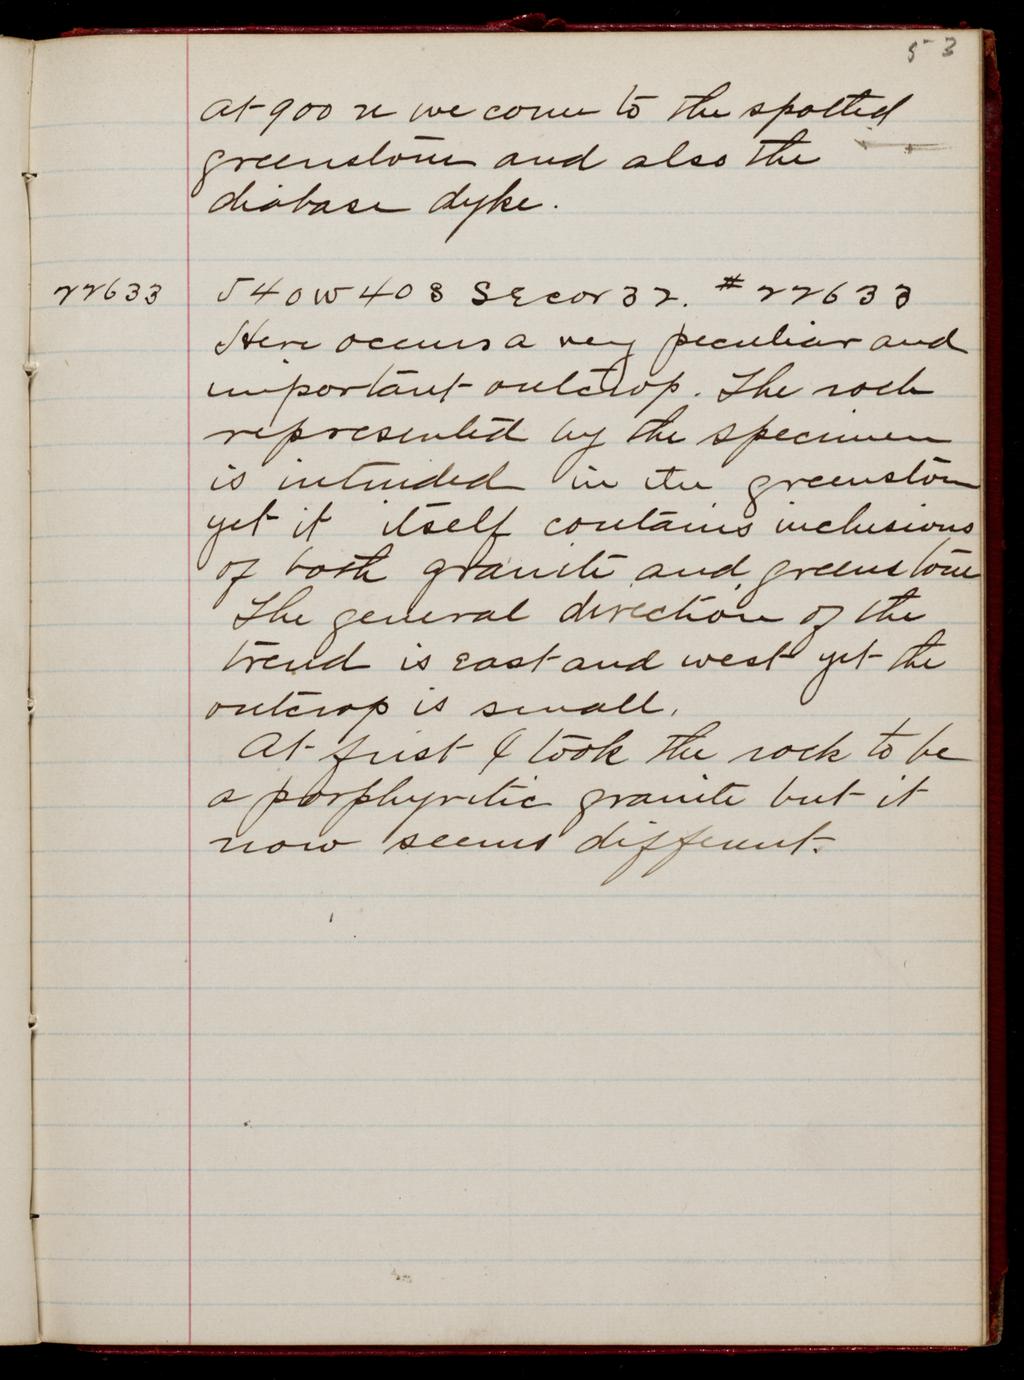 53
at 900 N we come to the spotted
greenstone and also the
diabase dyke.
22633 540 W 408 S E cor 32. # 22633
Here occurs a very peculiar and
important outcrop. The rock
represented by the specimen
is intruded in the greenstone
yet it itself contains inclusions
of both granite and greenstone
The general direction of the
trend is east and west yet the
outcrop is small.
At first I took the rock to be
a porphyritic granite but it
now seems different.